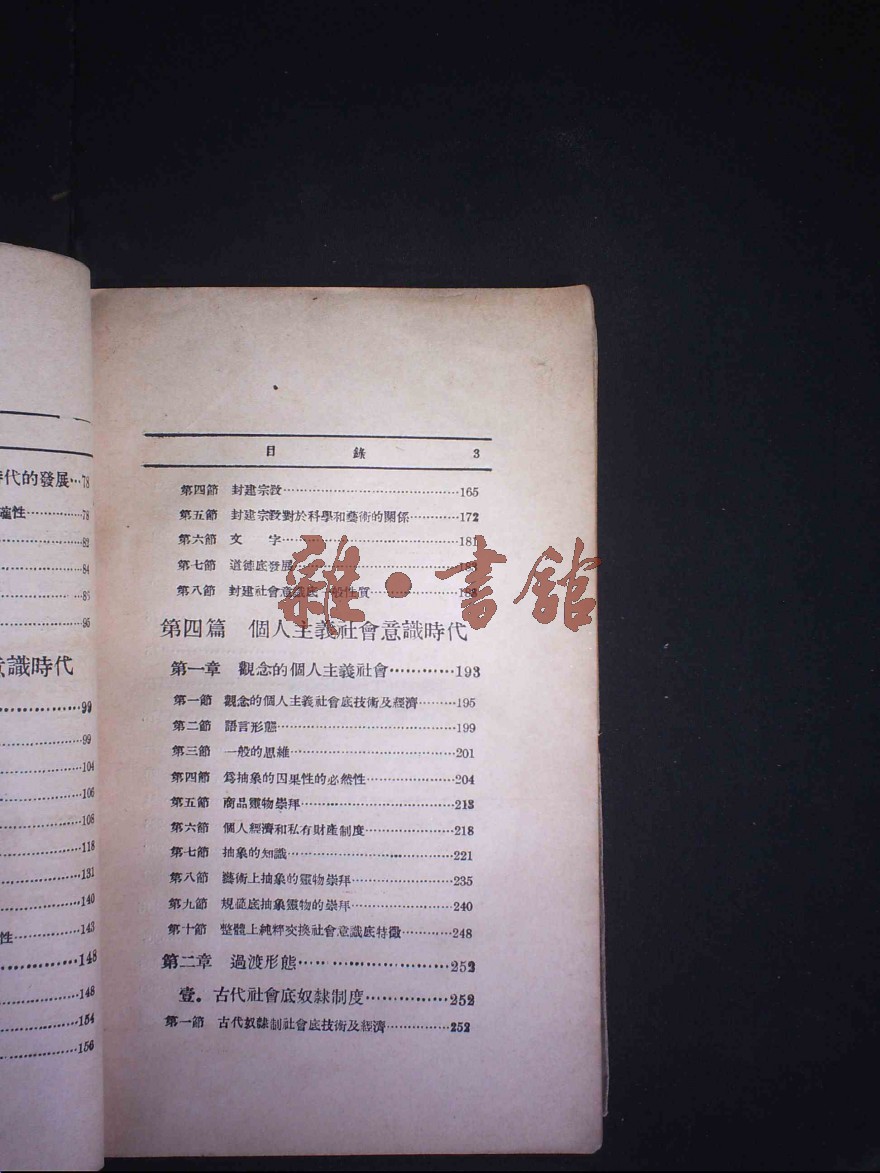 代的發展…78
性…78
82
84
95
意識時代
99
99
104
106
108
118
131
140
性…143
148
148
154
156
目 錄 3
第四節 封建宗敎…165
第五節 封建宗敎對於科學和藝術的關係…172
第六節 文 字…181
第七節 道德底發展
第八節 封建社會意識底一般性質
雜·書館
第四篇 個人主義社會意識時代
第一章 觀念的個人主義社會…193
第一節 觀念的個人主義社會底技術及經濟…195
第二節 語言形態…199
第三節 一般的思維…201
第四節 爲抽象的因果性的必然性…204
第五節 商品靈物崇拜…213
第六節 個人經濟和私有財產制度…218
第七節 抽象的知識…221
第八節 藝術上抽象的靈物崇拜…235
第九節 規範底抽象靈物的崇拜…240
第十節 整體上純粹交換社會意識底特徵…248
第二章 過渡形態…252
壹．古代社會底奴隸制度…252
第一節 古代奴隸制社會底技術及經濟…252